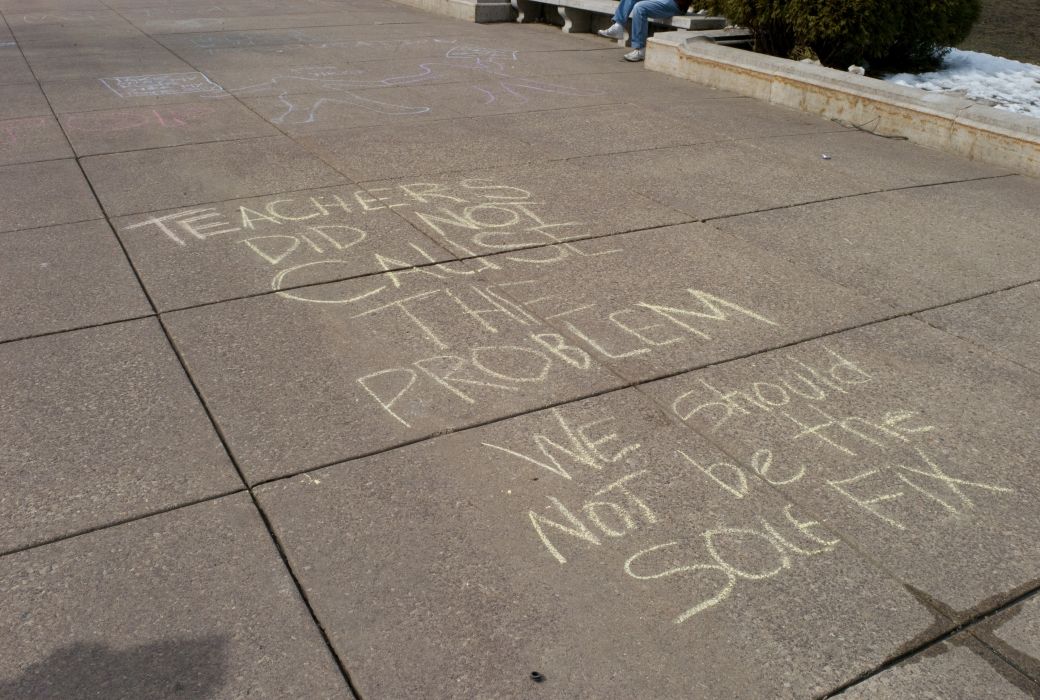 TEACHERS
DID NOT
CAUSE
THE
PROBLEM
WE Should
NOT be the
SOLE FIX